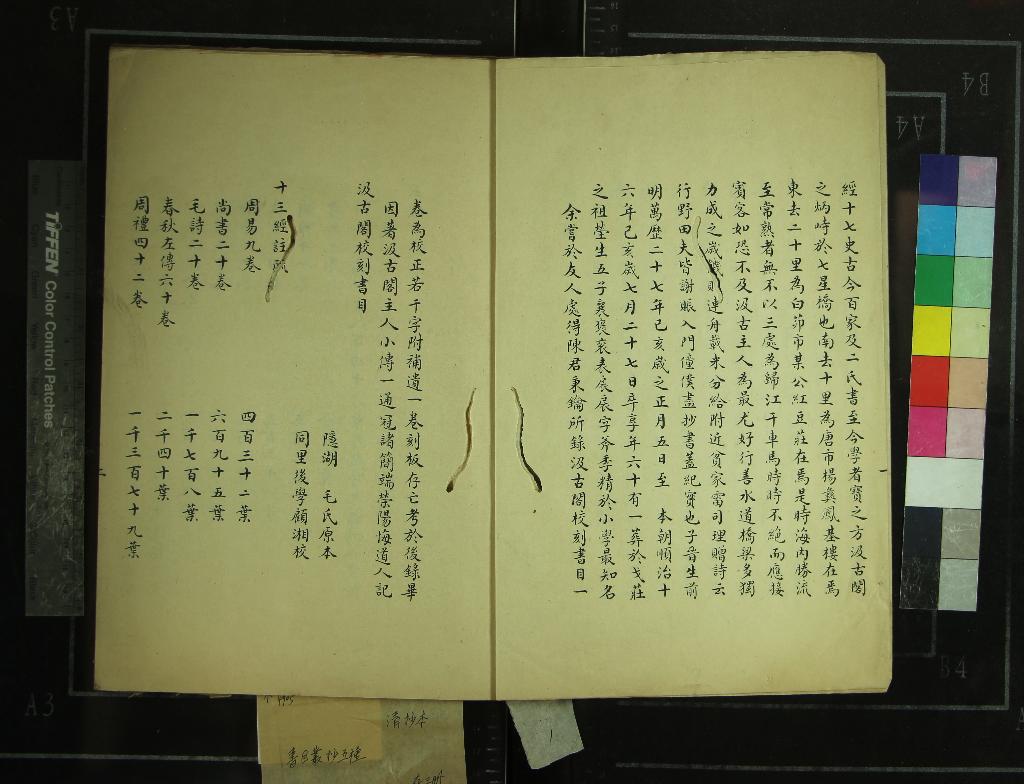 經十七史古今百家及二氏書至今學者寶之方汲古閣
之炳峙於七星橋也南去十里為唐市楊彝鳳基樓在焉
東去二十里為白茆市某公紅豆莊在焉是時海內勝流
至常熟者無不以三處為歸江干車馬時時不絕而應接
賓客如恐不及汲古主人為最尤好行善水道橋梁多獨
力成之歲饑則連舟載米分給附近貧家雷司理贈詩云
行野田夫皆謝賑入門僮僕盡抄書蓋紀實也子晉生前
明萬歷二十七年己亥歲之正月五日至 本朝順治十
六年己亥歲七月二十七日卒享年六十有一葬於戈莊
之祖塋生五子襄褒袞表扆扆字斧季精於小學最知名
余嘗於友人處得陳君秉鑰所錄汲古閣校刻書目一
一
卷為校正若干字附補遺一卷刻板存亡考於後錄畢
因著汲古閣主人小傳一通冠諸簡端滎陽悔道人記
汲古閣校刻書目
隱湖 毛氏原本
同里後學顧湘校
十三經註疏
周易九卷 四百三十二葉
尚書二十卷 六百九十五葉
毛詩二十卷 一千七百八葉
春秋左傳六十卷 二千四十葉
周禮四十二卷 一千三百七十九葉
二
清抄本
書目叢抄五種
存三册
1
TIFFEN Color Control Patches
A3
A4
B4
A3
B4